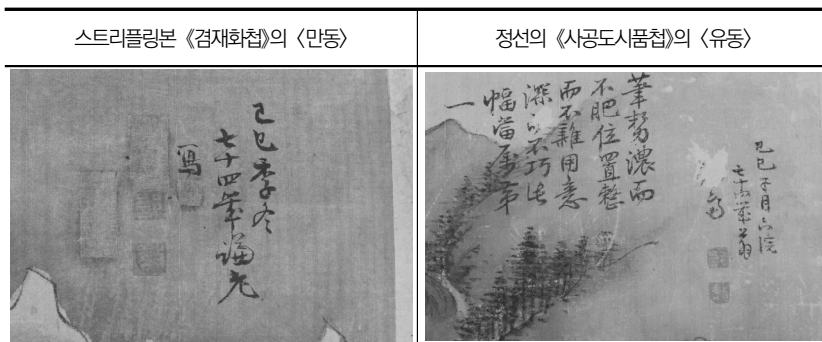 스트리플링본 《겸재화첩》의 〈만동〉
정선의 《사공도시품첩》의 〈유동〉
己巳季冬
七十四歲謙老
寫
筆勢濃而
不肥位置整
而不雜用意
深而不巧此
幅當爲第
一
己巳子月
七十四歲翁
寫